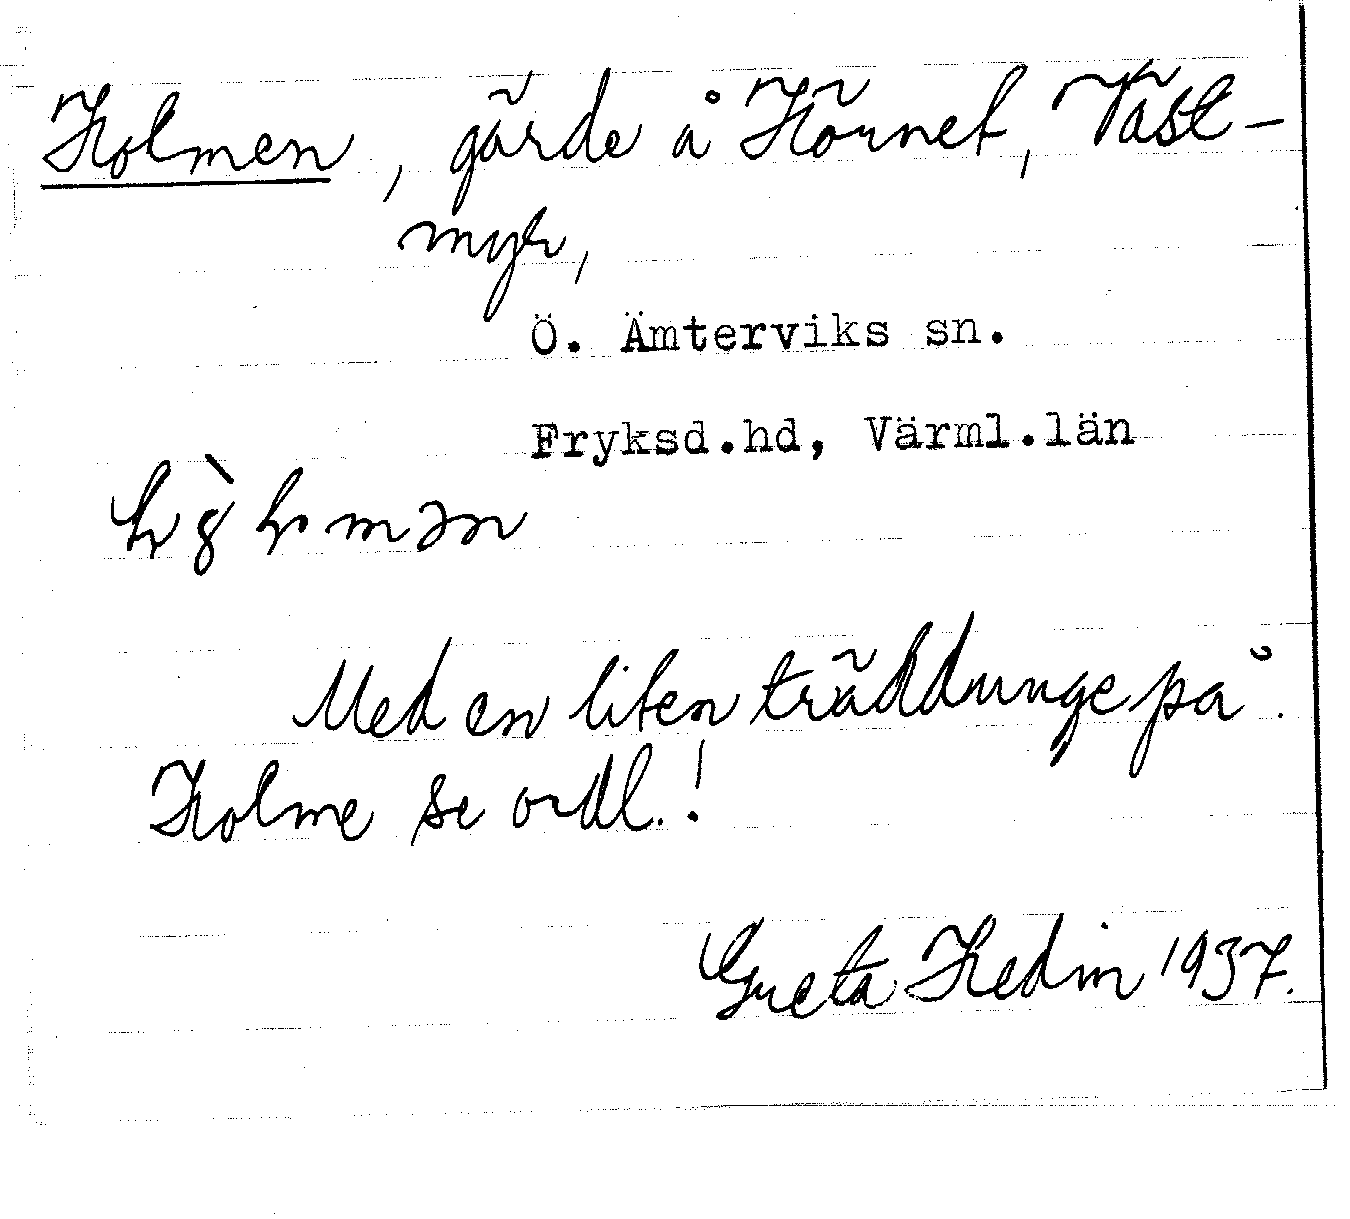 Holmen, gärde å Hörnet, Väst-
myr,
Ö. Ämterviks sn.
Fryksd.hd, Värml.län
Med en liten träddunge på.
Holme se ordl.!
Greta Hedin 1937.